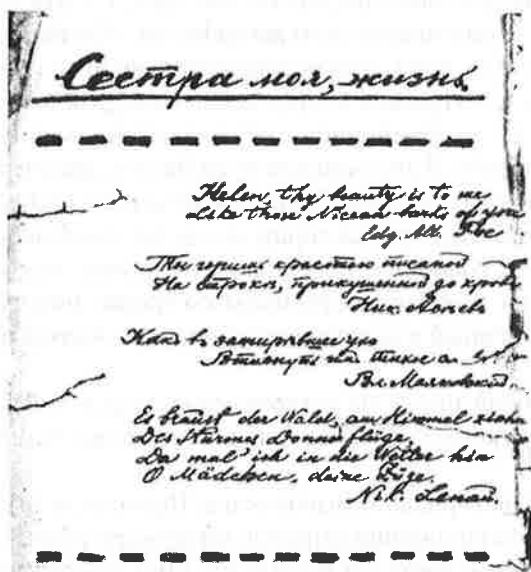 Сестра моя, жизнь
Helen, thy beauty is to me
Like those Nicean barks of yore
Edg. All. Poe
Ты горишь писаной
На строки, прикушенной до крови
Ник. Асеевъ
в зажиревшее ухо
Втиснуть им тихое
Вл. Маяковский
Es braust der Wald, am Himmel ziehn
Des Sturmes Donnerflüge,
Da mal' ich in die Wetter hin
O Mädchen, deine Züge.
Nik. Lenau.